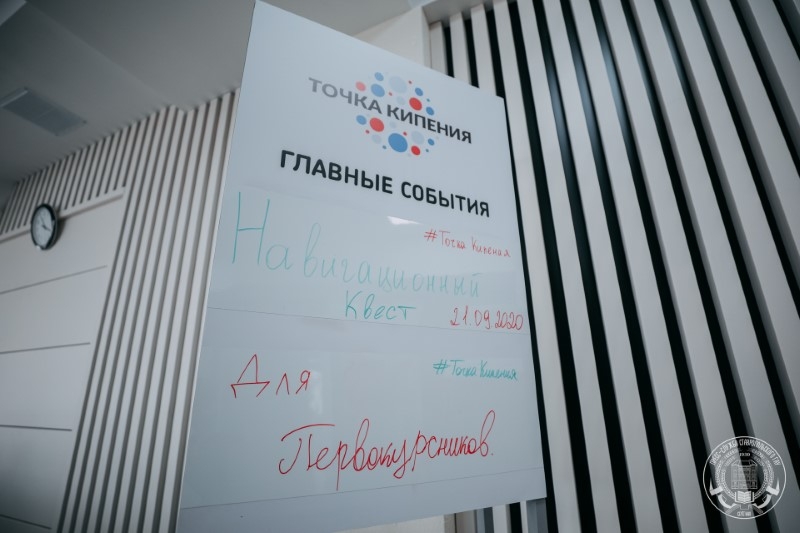 ТОЧКА КИПЕНИЯ
ГЛАВНЫЕ СОБЫТИЯ
#Точка Кипения
Навигационный
Квест 21.09.2020
#Точка Кипения
Для
Первокурсников.